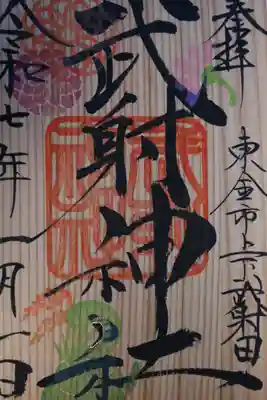 奉拝
東金市上下武射田
武射神社
令和七年一月一日